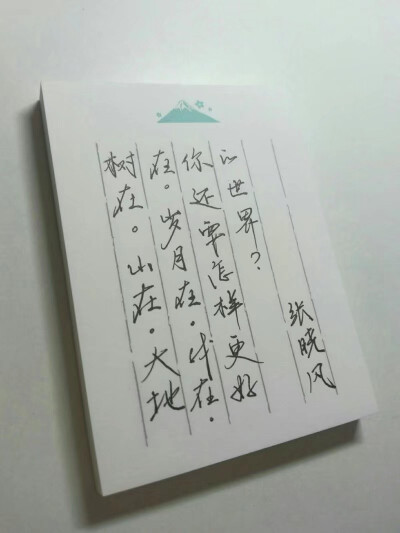 树在。山在。大地
在。岁月在。我在。
你还要怎样更好
的世界？
张晓风